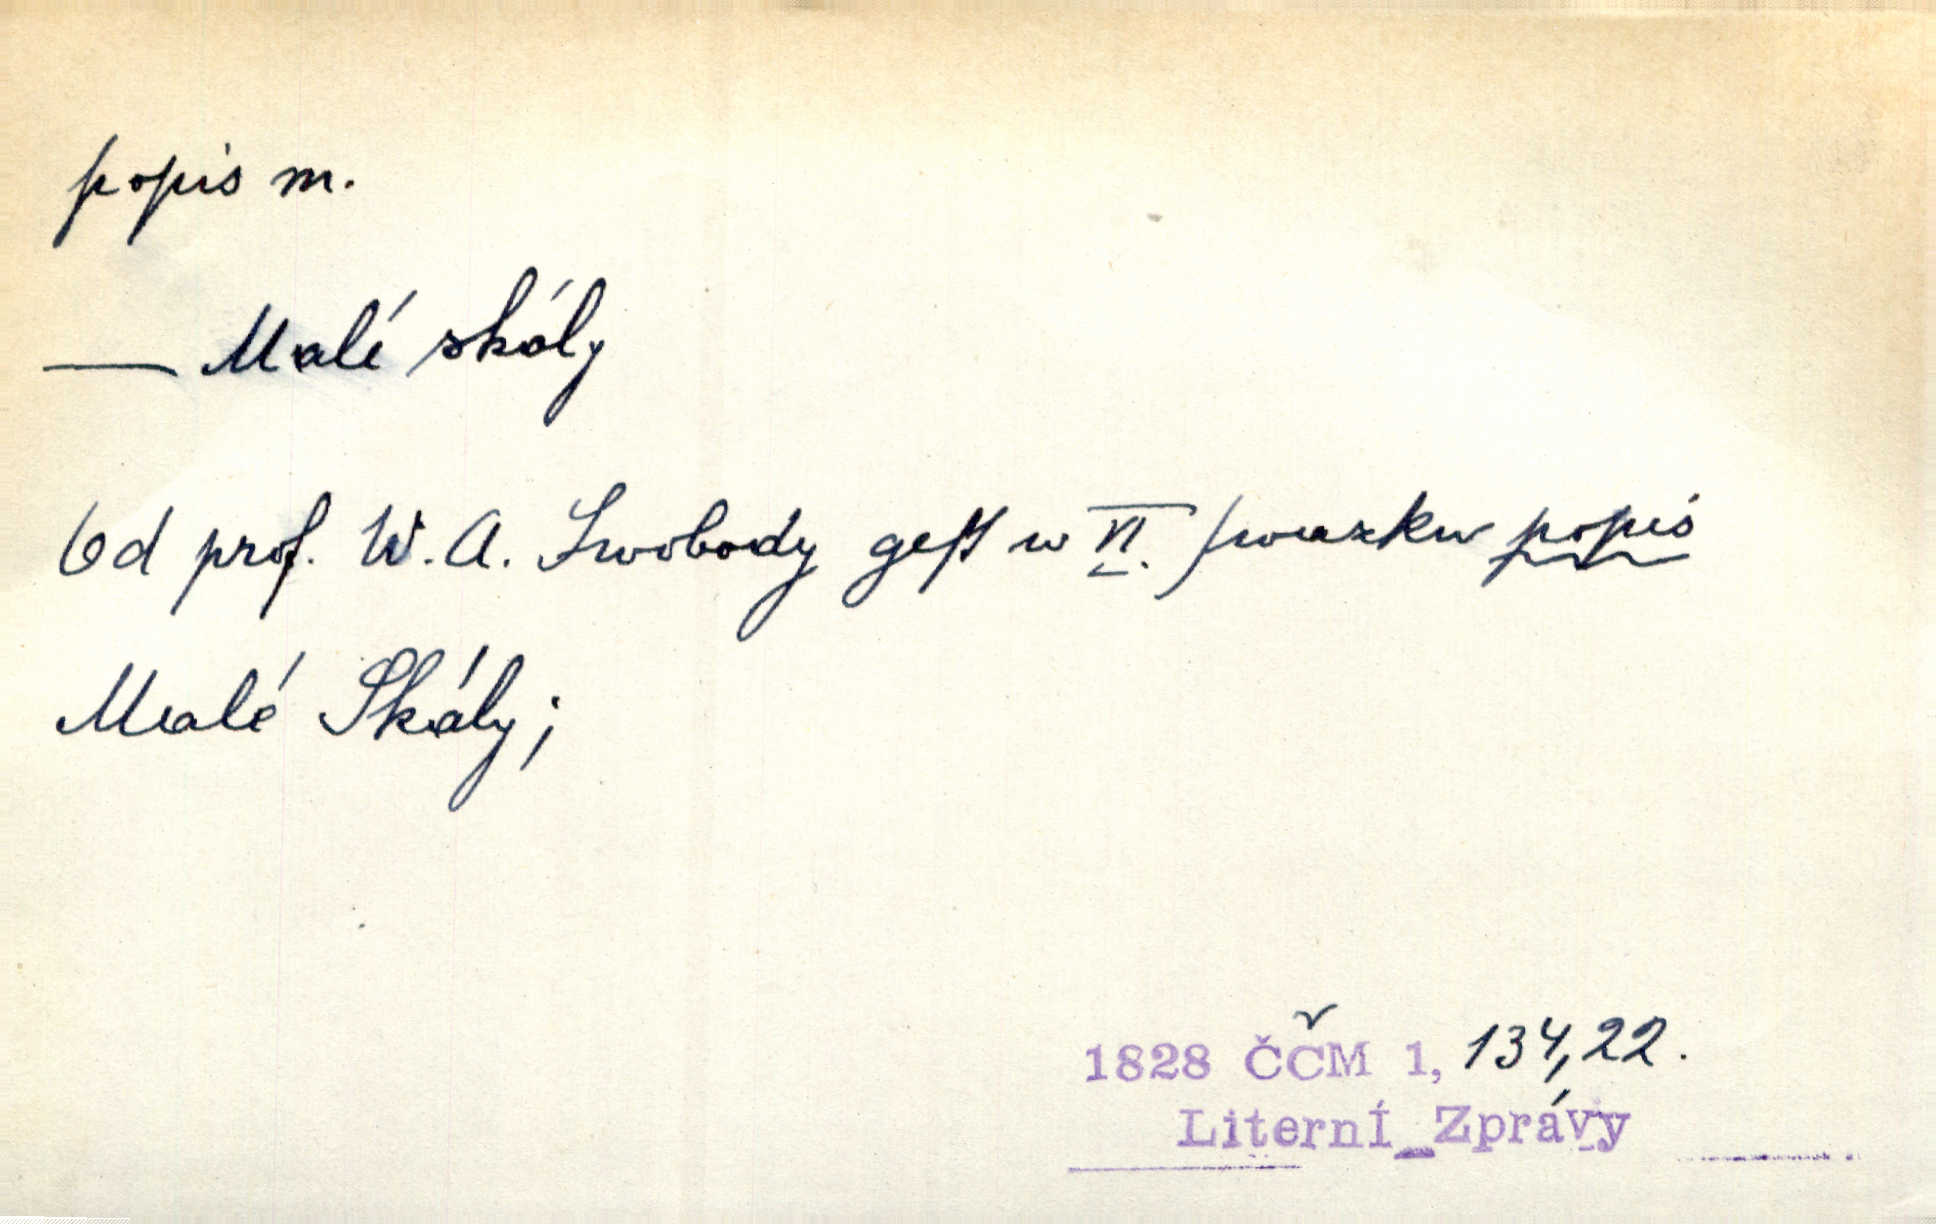 popis m.
— Malé skály
Od prof. W. A. Swobody gest w VI. swazku popis
Malé Skály;
1828 ČČM 1, 134,22.
Literní Zprávy